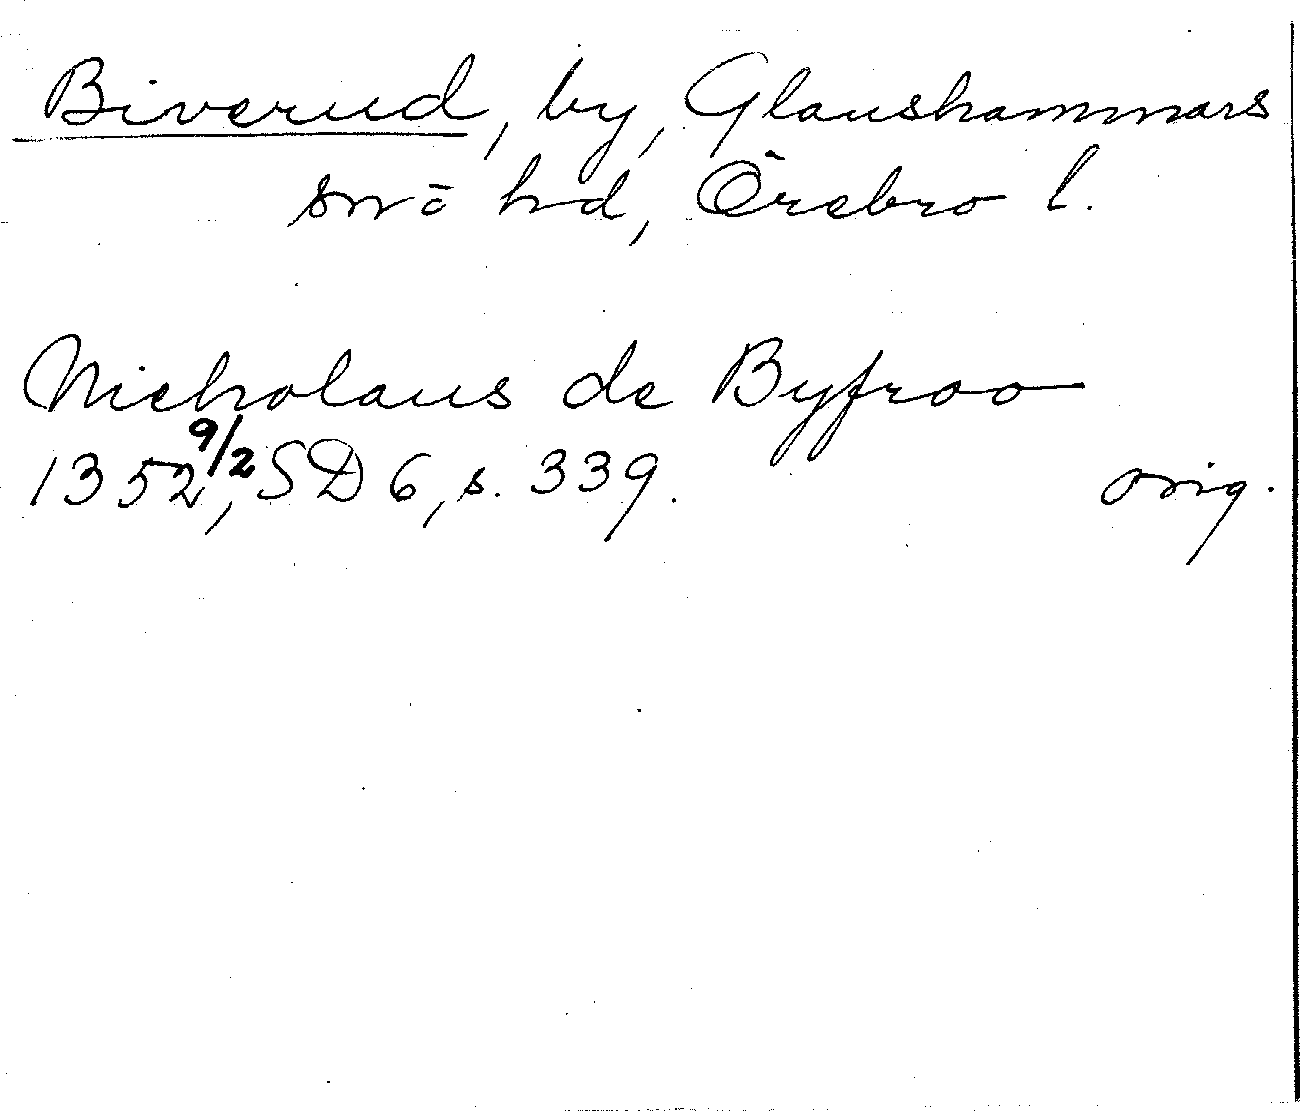 Biverud, by, Glanshammars
sn o hd, Örebro l.
Nicholaus de Byfroo
1352 9/2, SD 6, s. 339. orig.